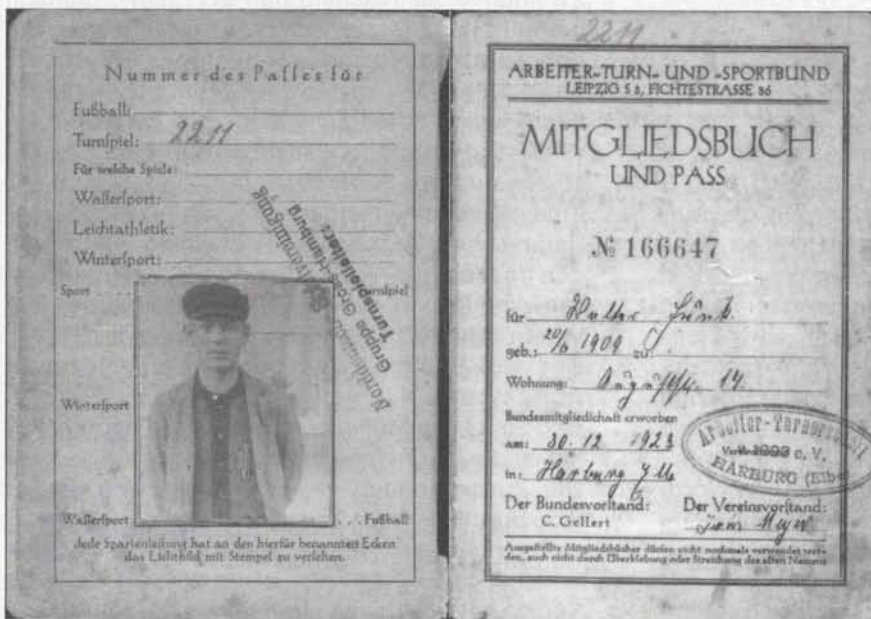 Nummer des Passes für
Fußball:
Turnspiel: 2211
Für welche Spiele:
Wassersport:
Leichtathletik:
Wintersport:
Sport
Turnspiel
Vereinigung
Gruppe Gross-Hamburg
Turnspielleiter:
Wintersport
Wassersport
Fußball
Jede Spartenleitung hat an den hierfür benannten Ecken
das Lichtbild mit Stempel zu versehen.
2211
ARBEITER-TURN- UND -SPORTBUND
LEIPZIG S 3, FICHTESTRASSE 36
MITGLIEDSBUCH
UND PASS
№ 166647
für Walter
geb.: 1909 zu:
Wohnung: 14.
Bundesmitgliedschaft erworben
am: 30. 12 1923
in: Harburg
Arbeiter-Turnerschaft
v. 1893 e. V.
HARBURG (Elbe)
Der Bundesvorstand:
C. Gellert
Der Vereinsvorstand:
Meyer
Ausgestellte Mitgliedsbücher dürfen nicht nochmals verwendet wer-
den, auch nicht durch Überklebung oder Streichung des alten Namens